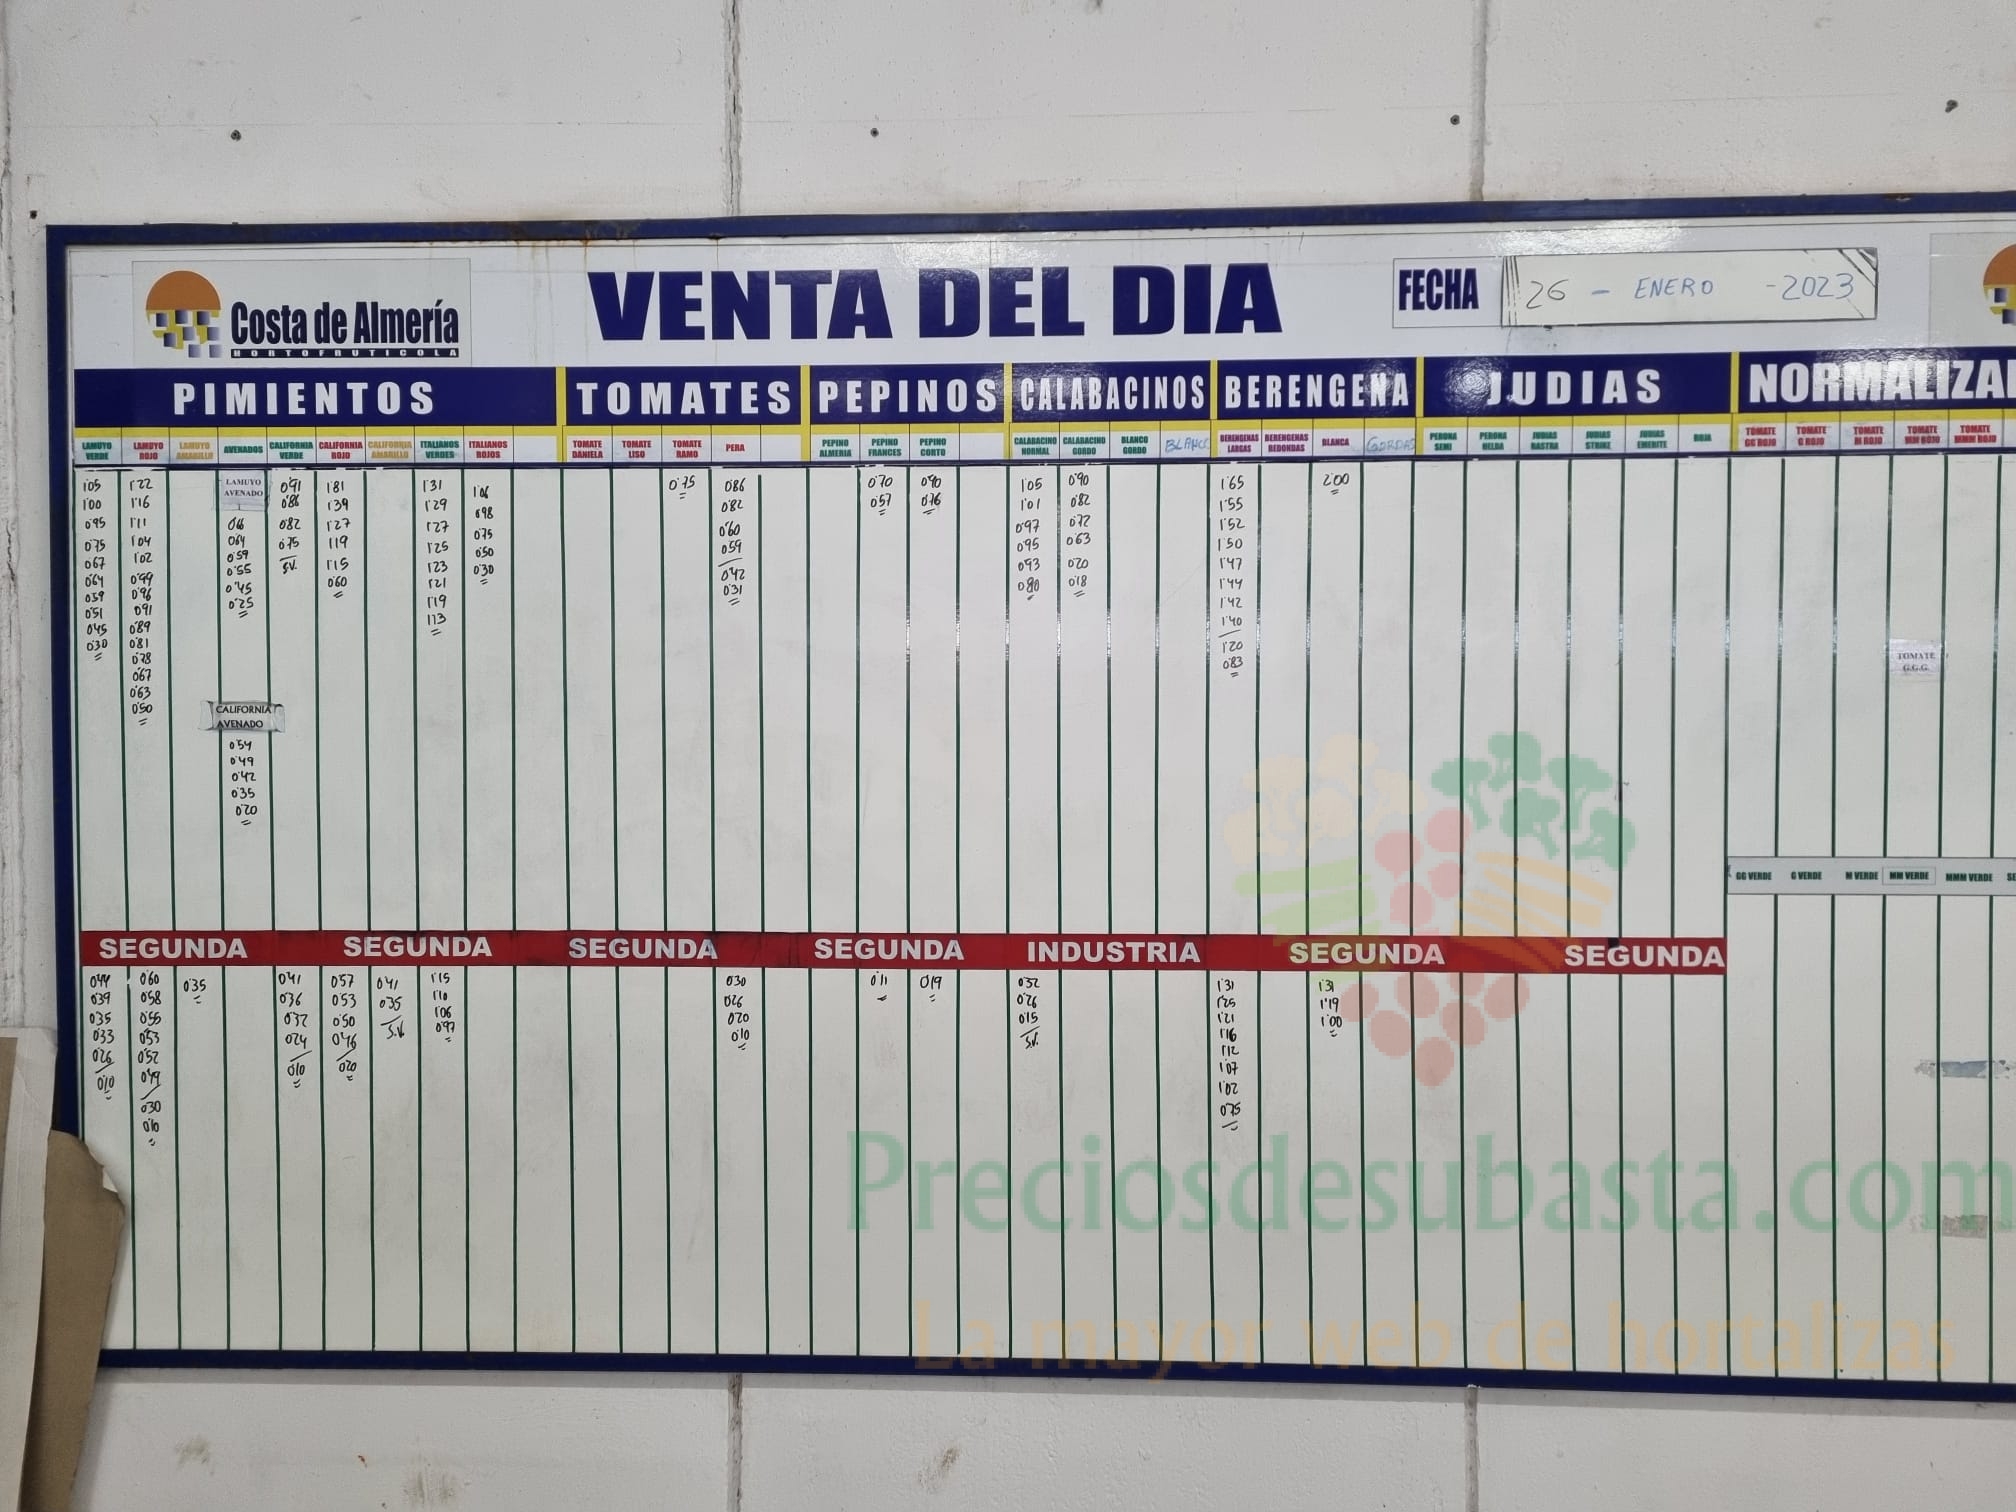 Costa de Almería
HORTOFRUTICOLA
VENTA DEL DIA
FECHA
26 - ENERO - 2023
PIMIENTOS TOMATES PEPINOS CALABACINOS BERENGENA JUDIAS
LAMUYO VERDE
LAMUYO ROJO
LAMUYO AMARILLO
AVENADOS
CALIFORNIA VERDE
CALIFORNIA ROJO
CALIFORNIA AMARILLO
ITALIANOS VERDES
ITALIANOS ROJOS
TOMATE DANIELA
TOMATE LISO
TOMATE RAMO
PERA
PEPINO ALMERIA
PEPINO FRANCES
PEPINO CORTO
CALABACINO NORMAL
CALABACINO GORDO
BLANCO GORDO
BERENGENAS LARGAS
BERENGENAS REDONDAS
BLANCA
GORDAS
PERONA SEMI
PERONA HELDA
JUDIAS RASTRA
JUDIAS STRIKE
JUDIAS EMERITE
ROJA
TOMATE GG ROJO
TOMATE G ROJO
TOMATE M ROJO
TOMATE MM ROJO
TOMATE MMM ROJO
1'05
1'00
0'95
0'75
0'67
0'64
0'59
0'51
0'45
0'30
1'22
1'16
1'11
1'04
1'02
0'99
0'96
0'91
0'89
0'81
0'78
0'67
0'63
0'50
LAMUYO
AVENADO
0'64
0'59
0'55
0'45
0'25
CALIFORNIA
AVENADO
0'54
0'49
0'42
0'35
0'20
0'91
0'86
0'82
0'75
S.V.
1'81
1'39
1'27
1'19
1'15
0'60
1'31
1'29
1'27
1'25
1'23
1'21
1'19
1'13
1'06
0'98
0'75
0'50
0'30
0'75
0'86
0'82
0'60
0'59
0'42
0'31
0'70
0'57
0'90
0'76
1'05
1'01
0'97
0'95
0'93
0'80
0'90
0'82
0'72
0'63
0'20
0'18
1'65
1'55
1'52
1'50
1'47
1'44
1'42
1'40
1'20
0'83
2'00
TOMATE
G.G.G.
GG VERDE G VERDE M VERDE MM VERDE MMM VERDE
SEGUNDA SEGUNDA SEGUNDA SEGUNDA INDUSTRIA SEGUNDA SEGUNDA
0'44
0'39
0'35
0'33
0'26
0'10
0'60
0'58
0'55
0'53
0'52
0'49
0'30
0'10
0'35
0'41
0'36
0'32
0'24
0'10
0'57
0'53
0'50
0'46
0'20
0'41
0'35
S.V.
1'15
1'10
1'06
0'97
0'30
0'26
0'20
0'10
0'11
0'19
0'32
0'26
0'15
S.V.
1'31
1'25
1'21
1'16
1'12
1'07
1'02
0'75
1'31
1'19
1'00
Preciosdesubasta.com
La mayor web de hortalizas